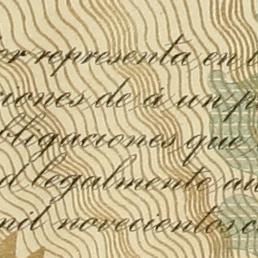 or representa en l
ciones de á un p
bligaciones que
d legalmente au
mil novecientos c